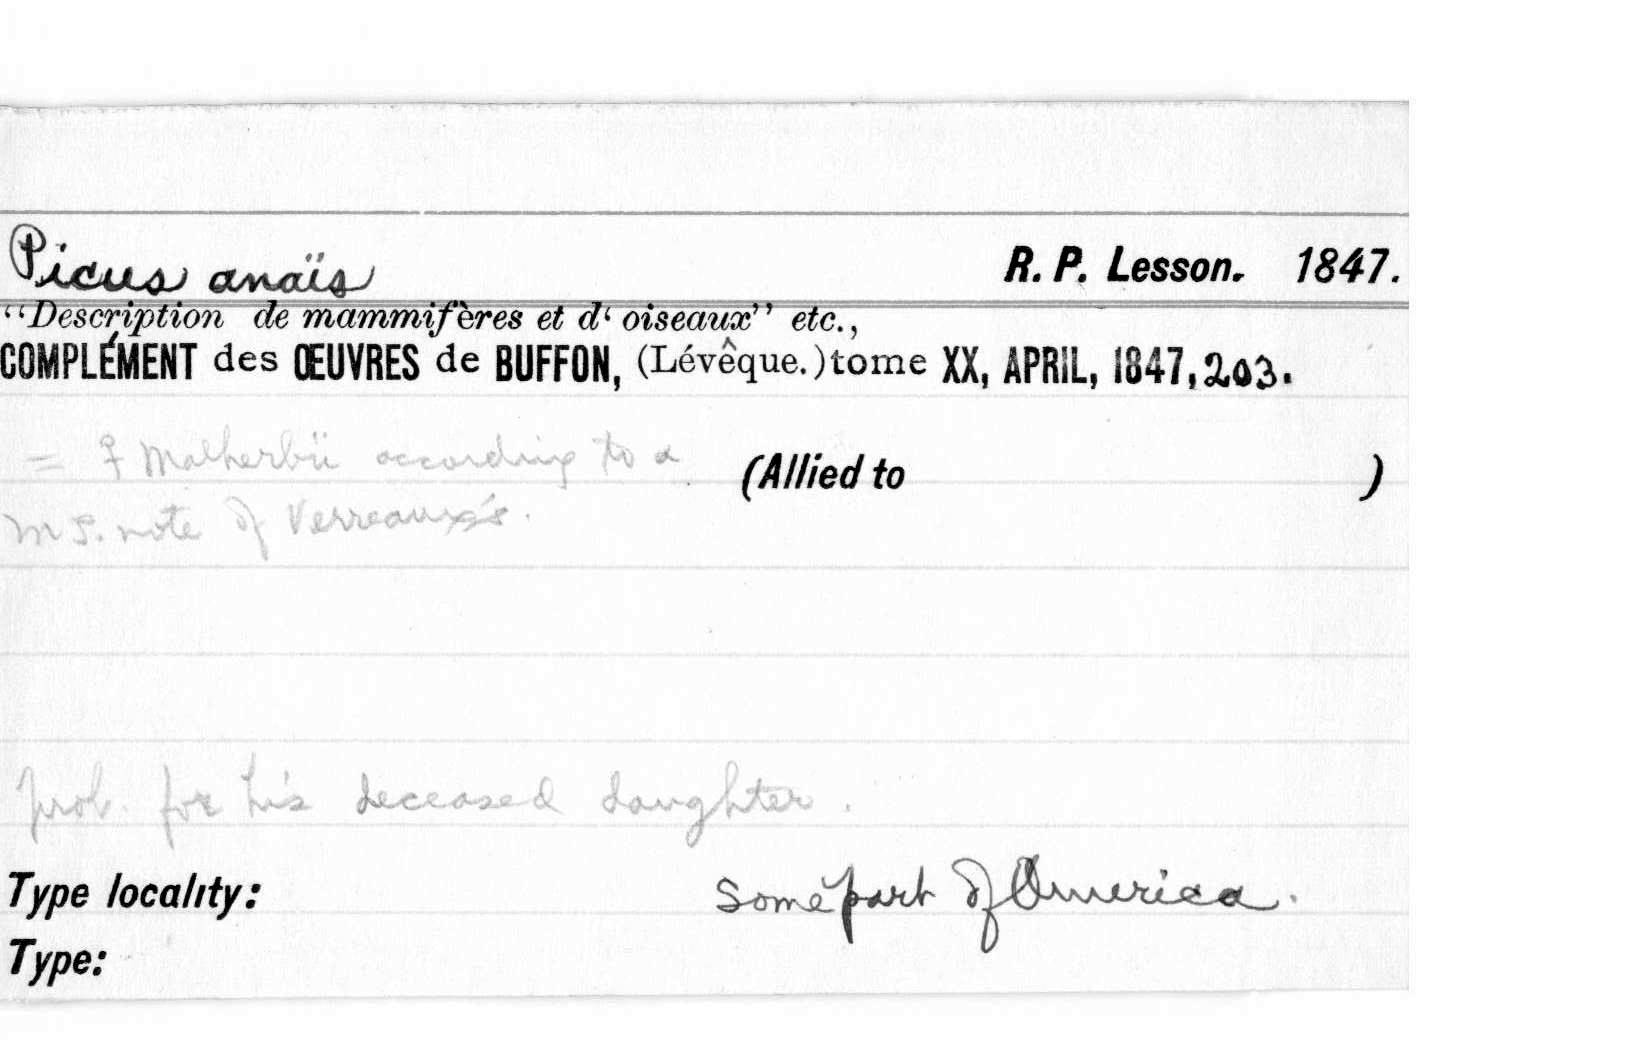 Picus anaïs R. P. Lesson. 1847.
“Description de mammifères et d‘ oiseaux” etc.,
COMPLÉMENT des ŒUVRES de BUFFON, (Lévêque.) tome XX, APRIL, 1847, 203.
= ♀ Malherbii according to a (Allied to )
MS. note of Verreaux's.
prob. for his deceased daughter.
Type locality: Some part of America.
Type: